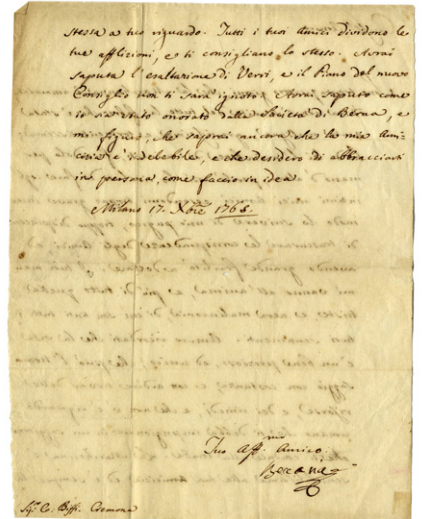 stessa a tuo riguardo. Tutti i tuoi Amici dividono le
tue afflizioni, e ti consigliano lo stesso. Avrai
saputa l'esaltazione di Verri, e il Piano del nuovo
Consiglio non ti sarà ignoto. Avrai saputo come
io sia stato onorato dalla Società di Berna, e
mi figuro, che saprai ancora che la mia Ami-
cizia è indelebile, e che desidero di abbracciarti
in persona, come faccio in idea
Milano 17. Xbre 1765.
Tuo Aff.mo Amico
Sigr. Co. Biffi. Cremona